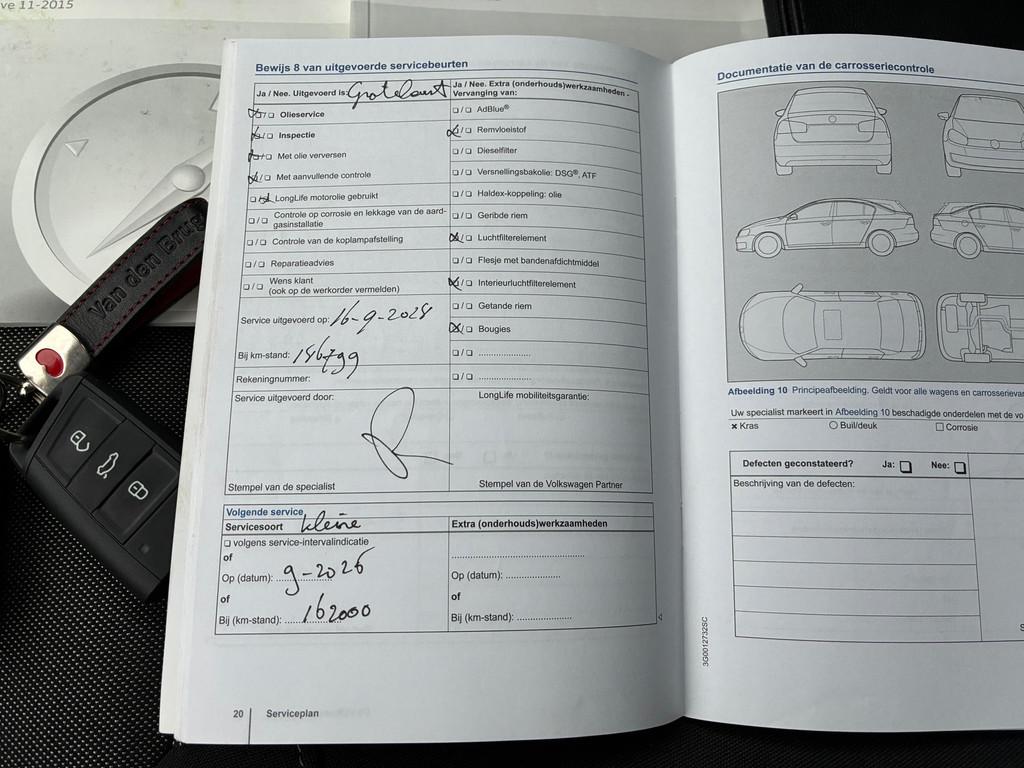 ve 11-2015
Van den Brug
Bewijs 8 van uitgevoerde servicebeurten
Ja / Nee. Uitgevoerd is:
Ja / Nee. Extra (onderhouds)werkzaamheden -
Vervanging van:
Olieservice
AdBlue®
Inspectie
Remvloeistof
Met olie verversen
Dieselfilter
Met aanvullende controle
Versnellingsbakolie: DSG®, ATF
LongLife motorolie gebruikt
Haldex-koppeling: olie
Controle op corrosie en lekkage van de aard-
gasinstallatie
Geribde riem
Controle van de koplampafstelling
Luchtfilterelement
Reparatieadvies
Flesje met bandenafdichtmiddel
Wens klant
(ook op de werkorder vermelden)
Interieurluchtfilterelement
Getande riem
Service uitgevoerd op: 16-9-
Bougies
Bij km-stand:
Rekeningnummer:
Service uitgevoerd door:
LongLife mobiliteitsgarantie:
Stempel van de specialist
Stempel van de Volkswagen Partner
Volgende service
Servicesoort kleine
Extra (onderhouds)werkzaamheden
volgens service-intervalindicatie
of
Op (datum): 9-2026
Op (datum):
of
of
Bij (km-stand): 162000
Bij (km-stand):
20 Serviceplan
Documentatie van de carrosseriecontrole
Afbeelding 10 Principeafbeelding. Geldt voor alle wagens en
Uw specialist markeert in Afbeelding 10 beschadigde onderdelen met de
Kras
Buil/deuk
Corrosie
Defecten geconstateerd? Ja: Nee:
Beschrijving van de defecten:
3G0012732SC